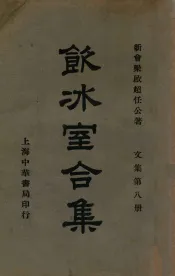 新會梁啟超任公著
文集第八册
飲冰室合集
上海中華書局印行